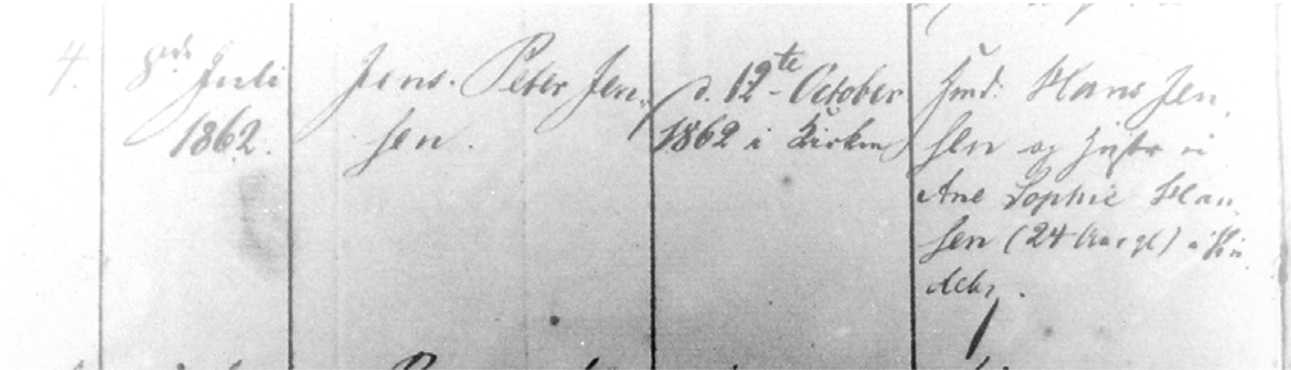 4.
8de Juli
1862.
Jens Peter Jen-
sen.
d. 12te October
1862 i Kirken
Hmd: Hans Jen-
sen og Hustru
Ane Sophie Han-
sen (24 Aar gl)